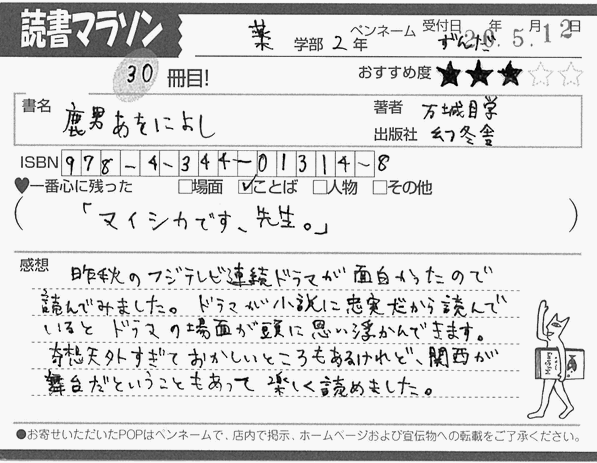 読書マラソン
薬 学部 2 年 ペンネーム ずんだ 受付日 20年5月12日
30 冊目!
おすすめ度 ★★★☆☆
書名 鹿男あをによし
著者 万城目学
出版社 幻冬舎
ISBN 978-4-344-01314-8
♥一番心に残った □場面 ☑ことば □人物 □その他
(「マイシカです、先生。」)
感想
昨秋のフジテレビ連続ドラマが面白かったので
読んでみました。ドラマが小説に忠実だから読んで
いると ドラマの場面が頭に思い浮かんできます。
奇想天外すぎておかしいところもあるけれど、関西が
舞台だということもあって楽しく読めました。
●お寄せいただいたPOPはペンネームで、店内で掲示、ホームページおよび宣伝物への転載をご了承ください。